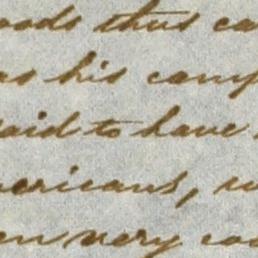 oods thus ca
as his camp
said to have
mericans, w
en very coo